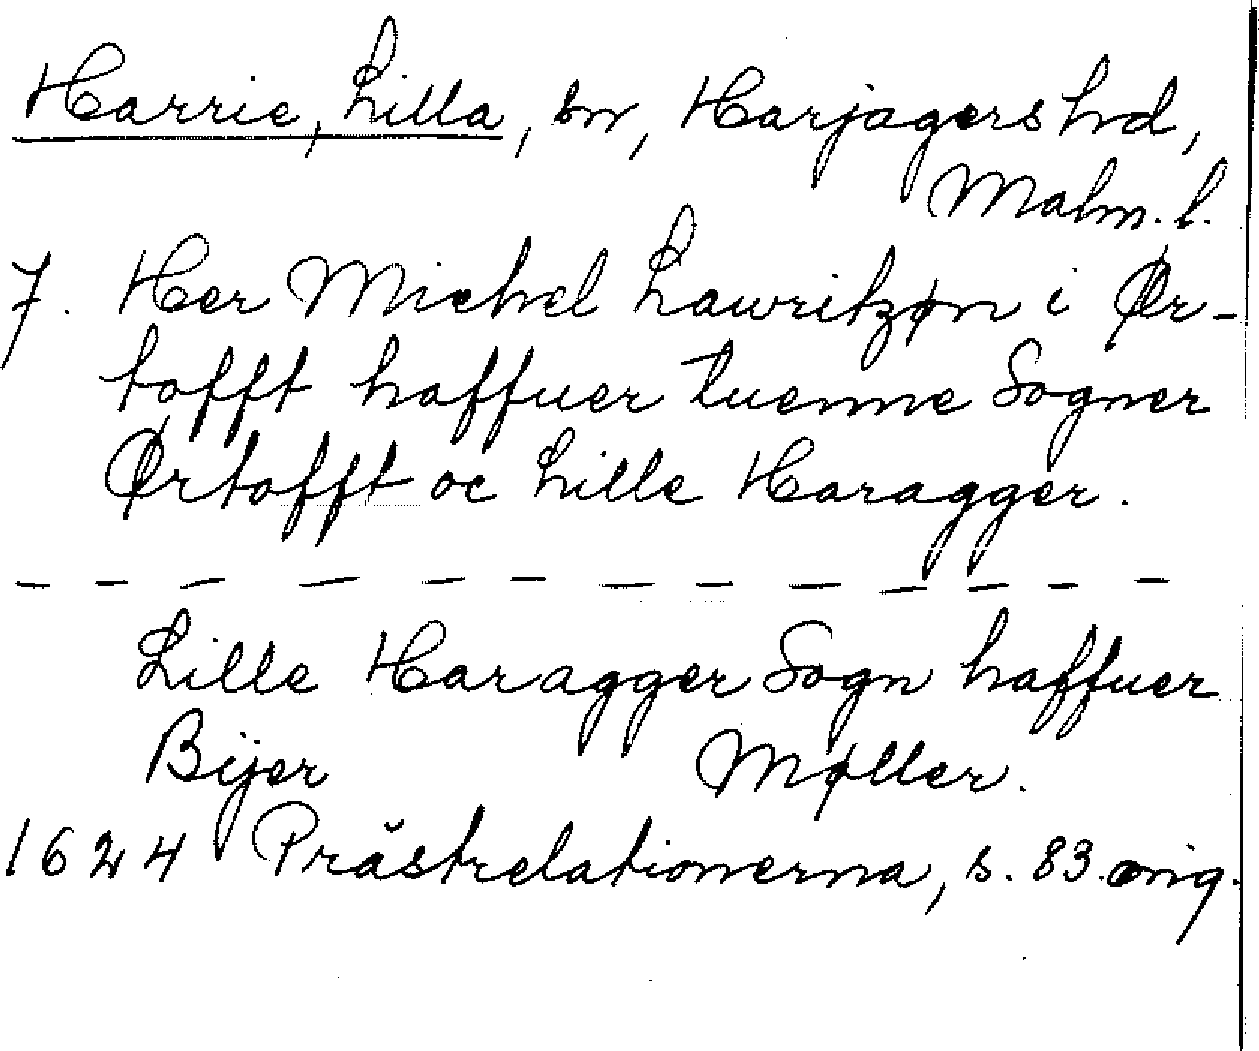 Harrie, Lilla, sn, Harjagers hd,
Malm. l.
7. Her Michel Lawritzøn i Ør-
tofft haffuer tuenne Sogner
Ørtofft oc Lille Haragger.
Lille Haragger Sogn haffuer
Bÿer Møller.
1624 Prästrelationerna, s. 83 orig.